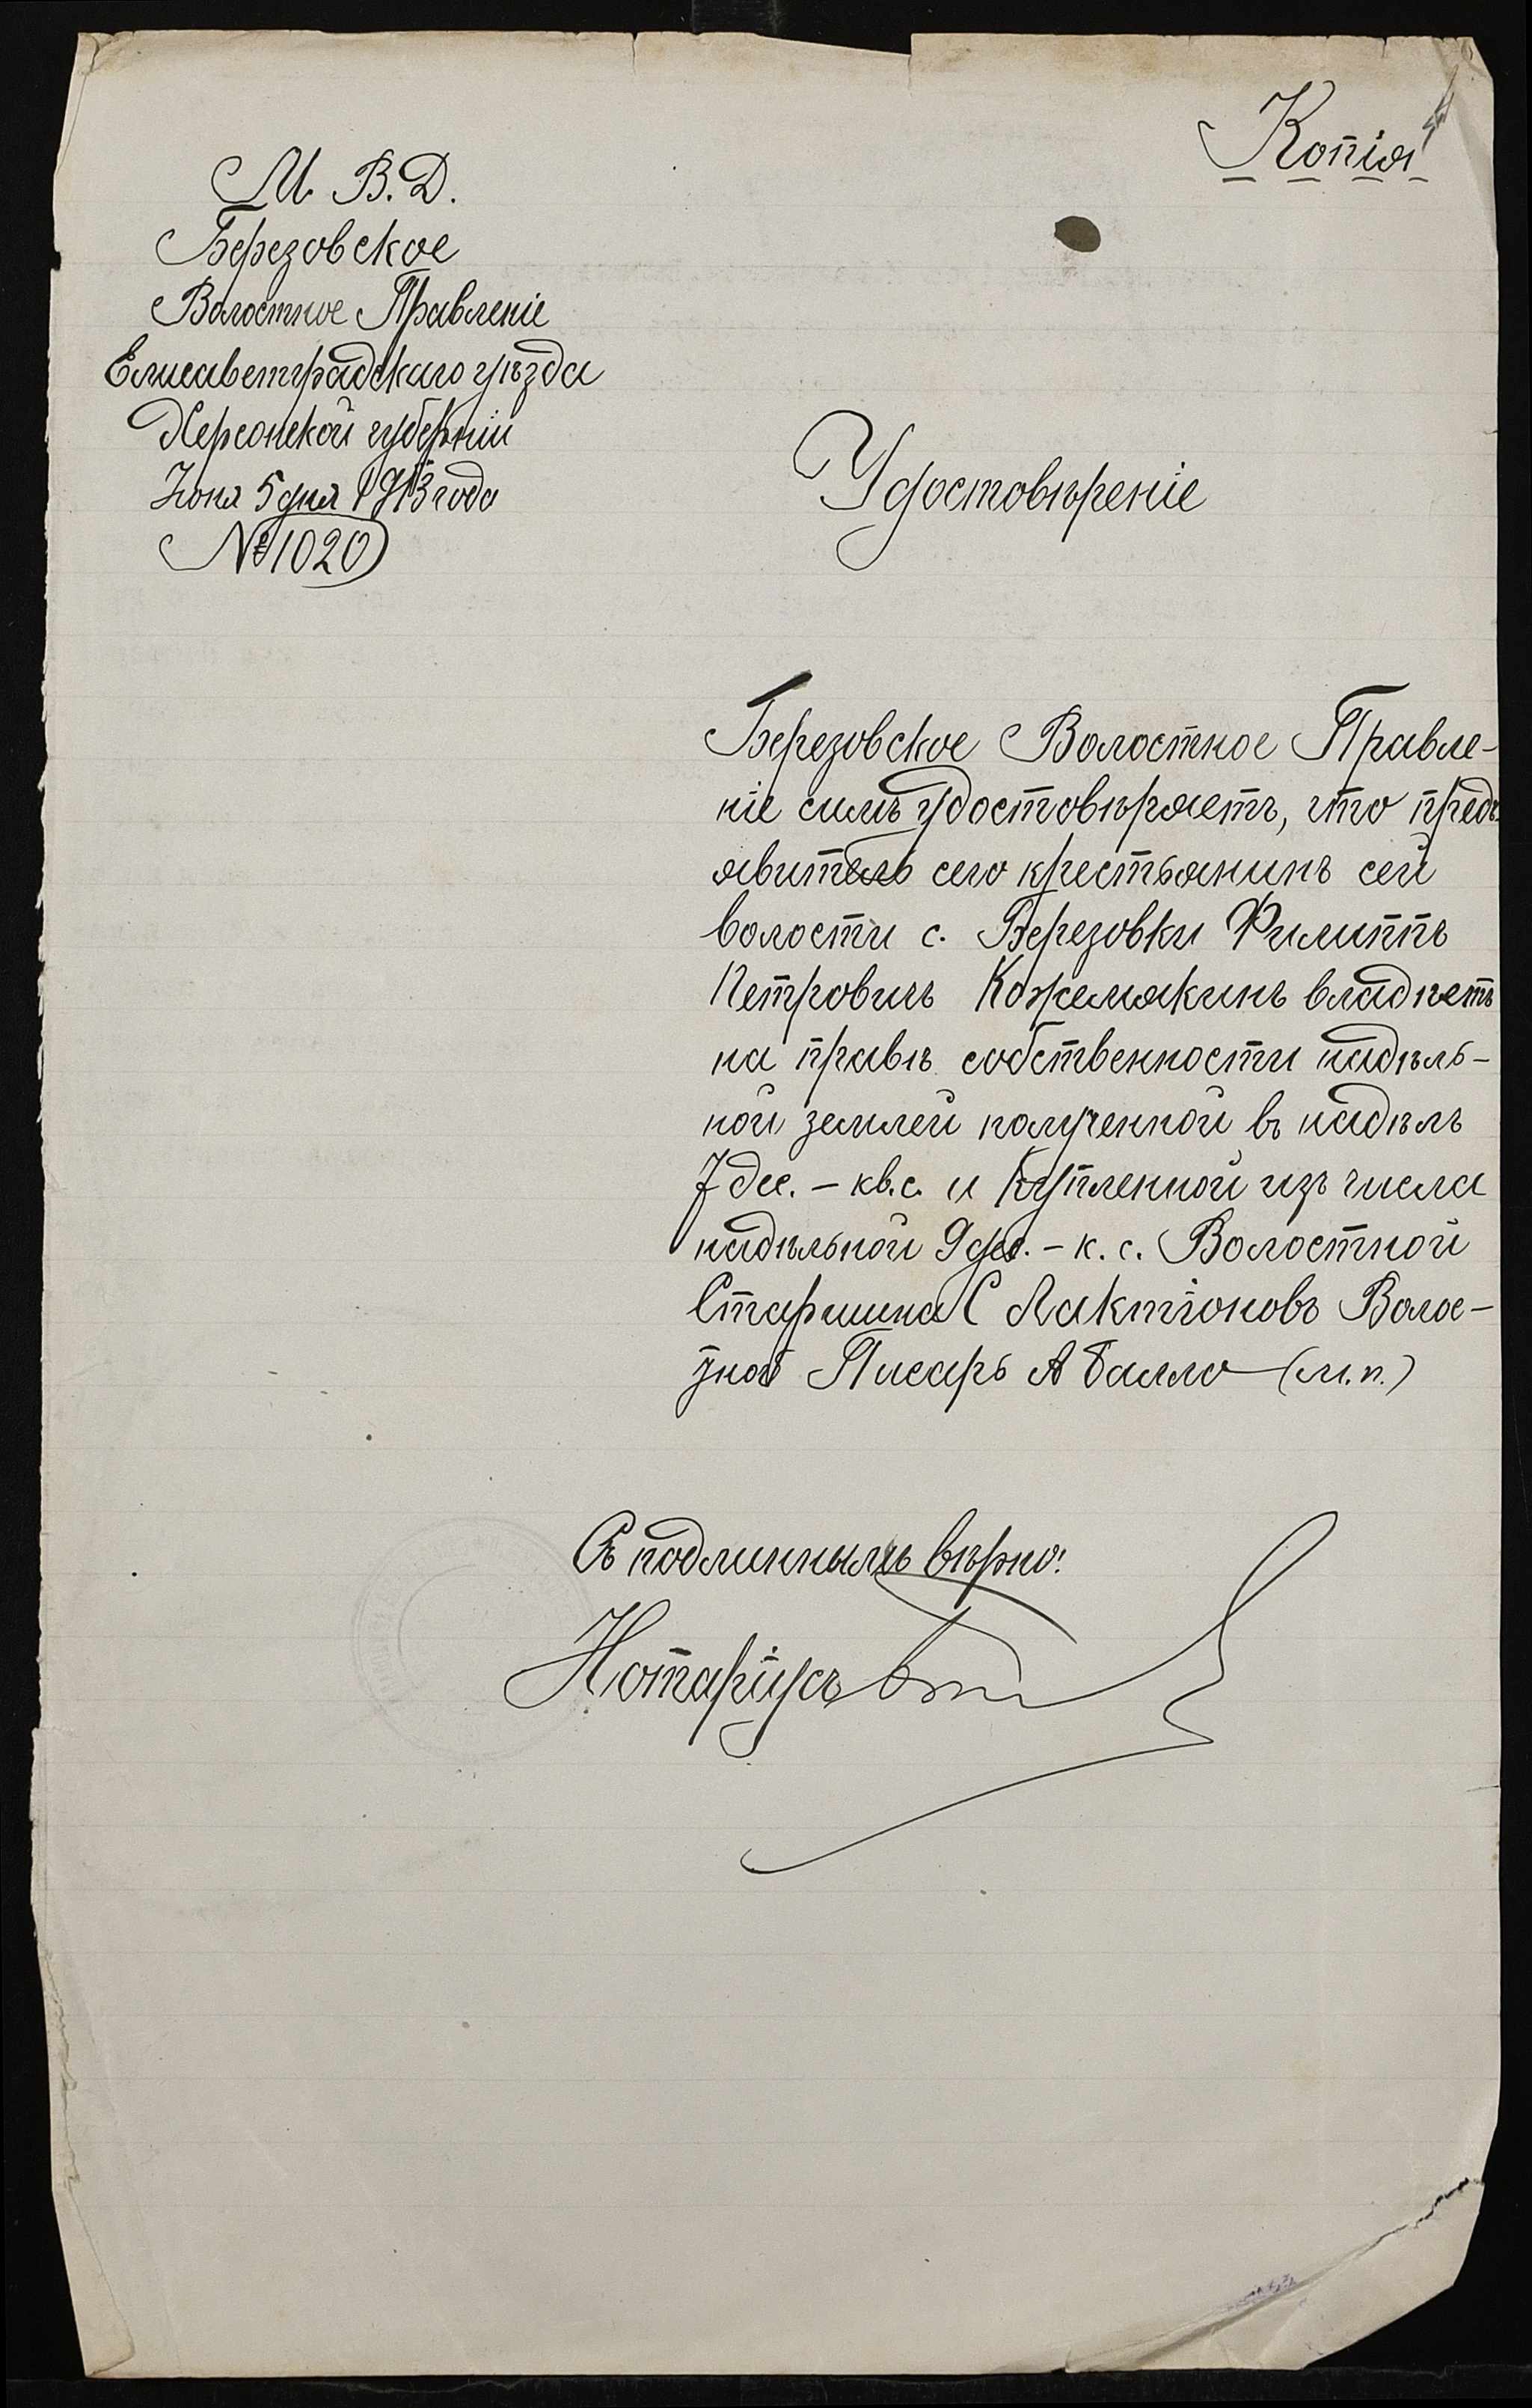 Копія
М. В. Д.
Березовское
Волостное Правленіе
Елисаветградскаго уѣзда
Херсонской губерніи
Іюня 5 дня 1913 года
№ 1020
Удостовѣреніе
Березовское Волостное Правле-
ніе симъ удостовѣряетъ, что предъ-
явитель сего крестьянинъ сей
волости с. Березовки Филиппъ
Петровичъ Кожемякинъ владѣетъ
на правѣ собственности надѣль-
ной землей полученной въ надѣлъ
7 дес. – кв. с. и купленной изъ числа
надѣльной 9 дес. – к. с. Волостной
Старшина С Лактіоновъ Волос-
тной Писарь А Балло (м. п.)
Съ подлиннымъ вѣрно:
Нотаріусъ